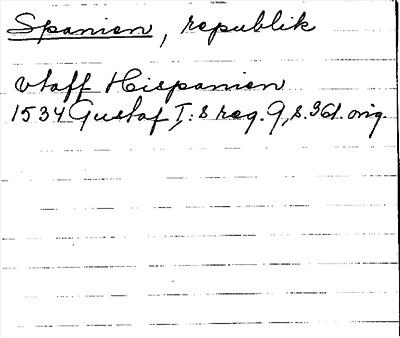 Spanien, republik
vtaff Hispanien
1534 Gustaf I:s reg. 9, s. 361. orig.